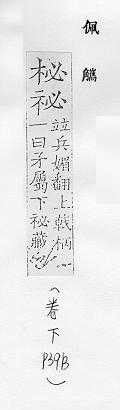 佩觿
柲祕
竝兵媚翻上戟柄
一曰矛屬下祕藏
(卷下 P39B)